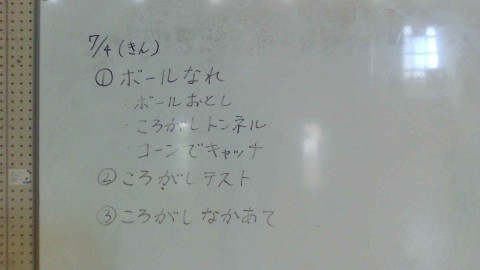 7/4(きん)
①ボールなれ
・ボールおとし
・ころがしトンネル
・コーンでキャッチ
②ころがしテスト
③ころがしなかあて